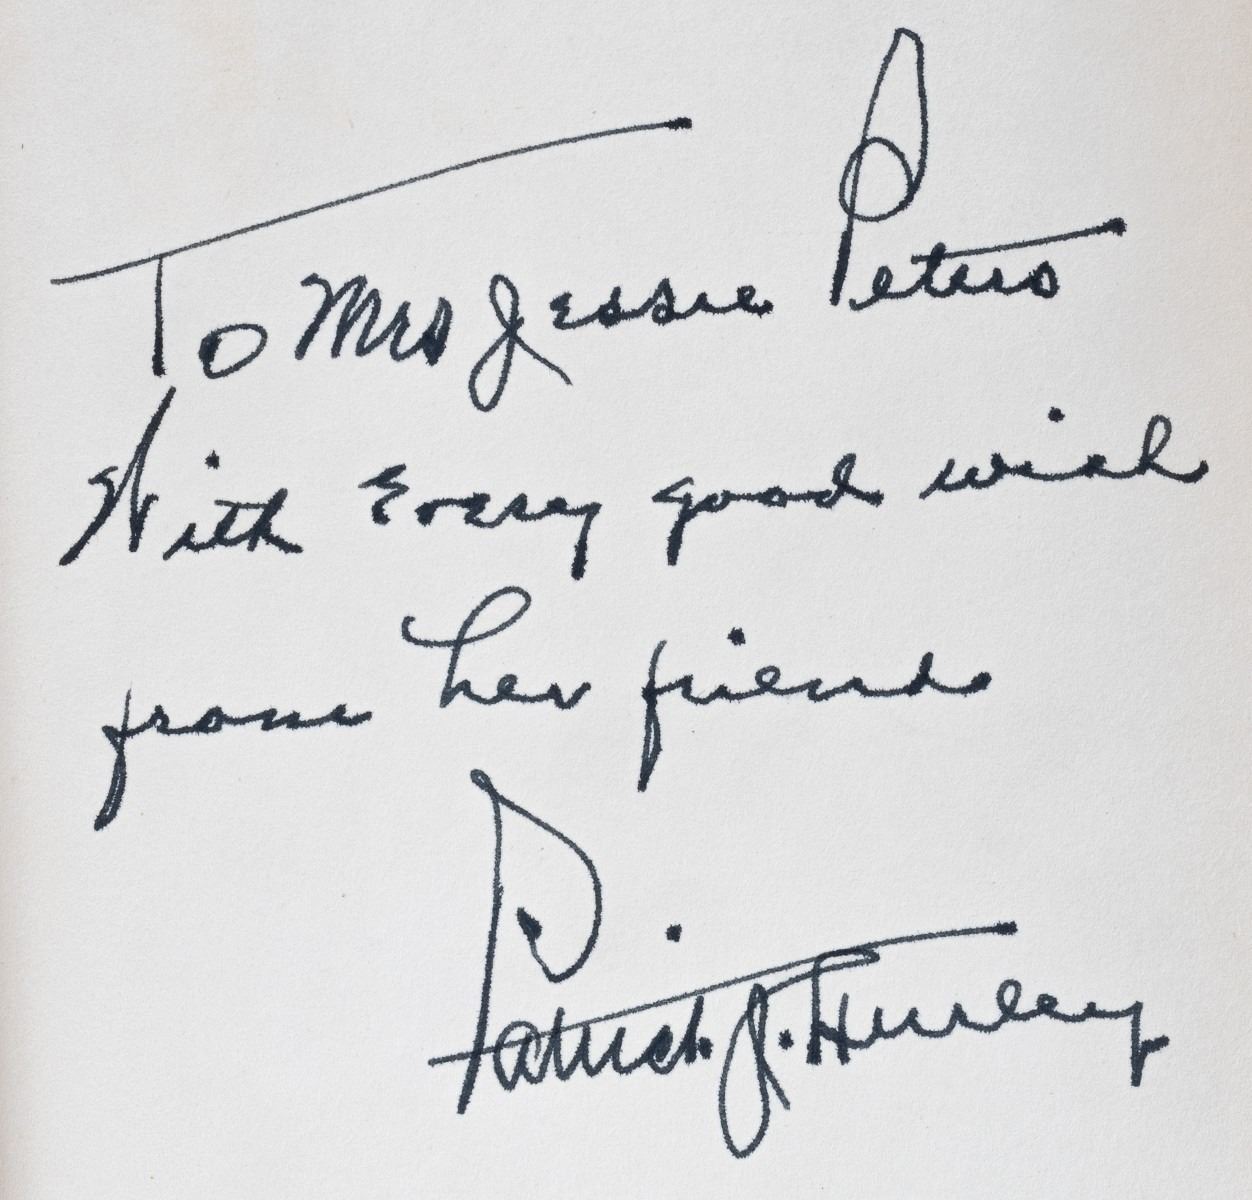 To Mrs Jessie Peters
With Every good wish
from her friend
Patrick J. Hurley